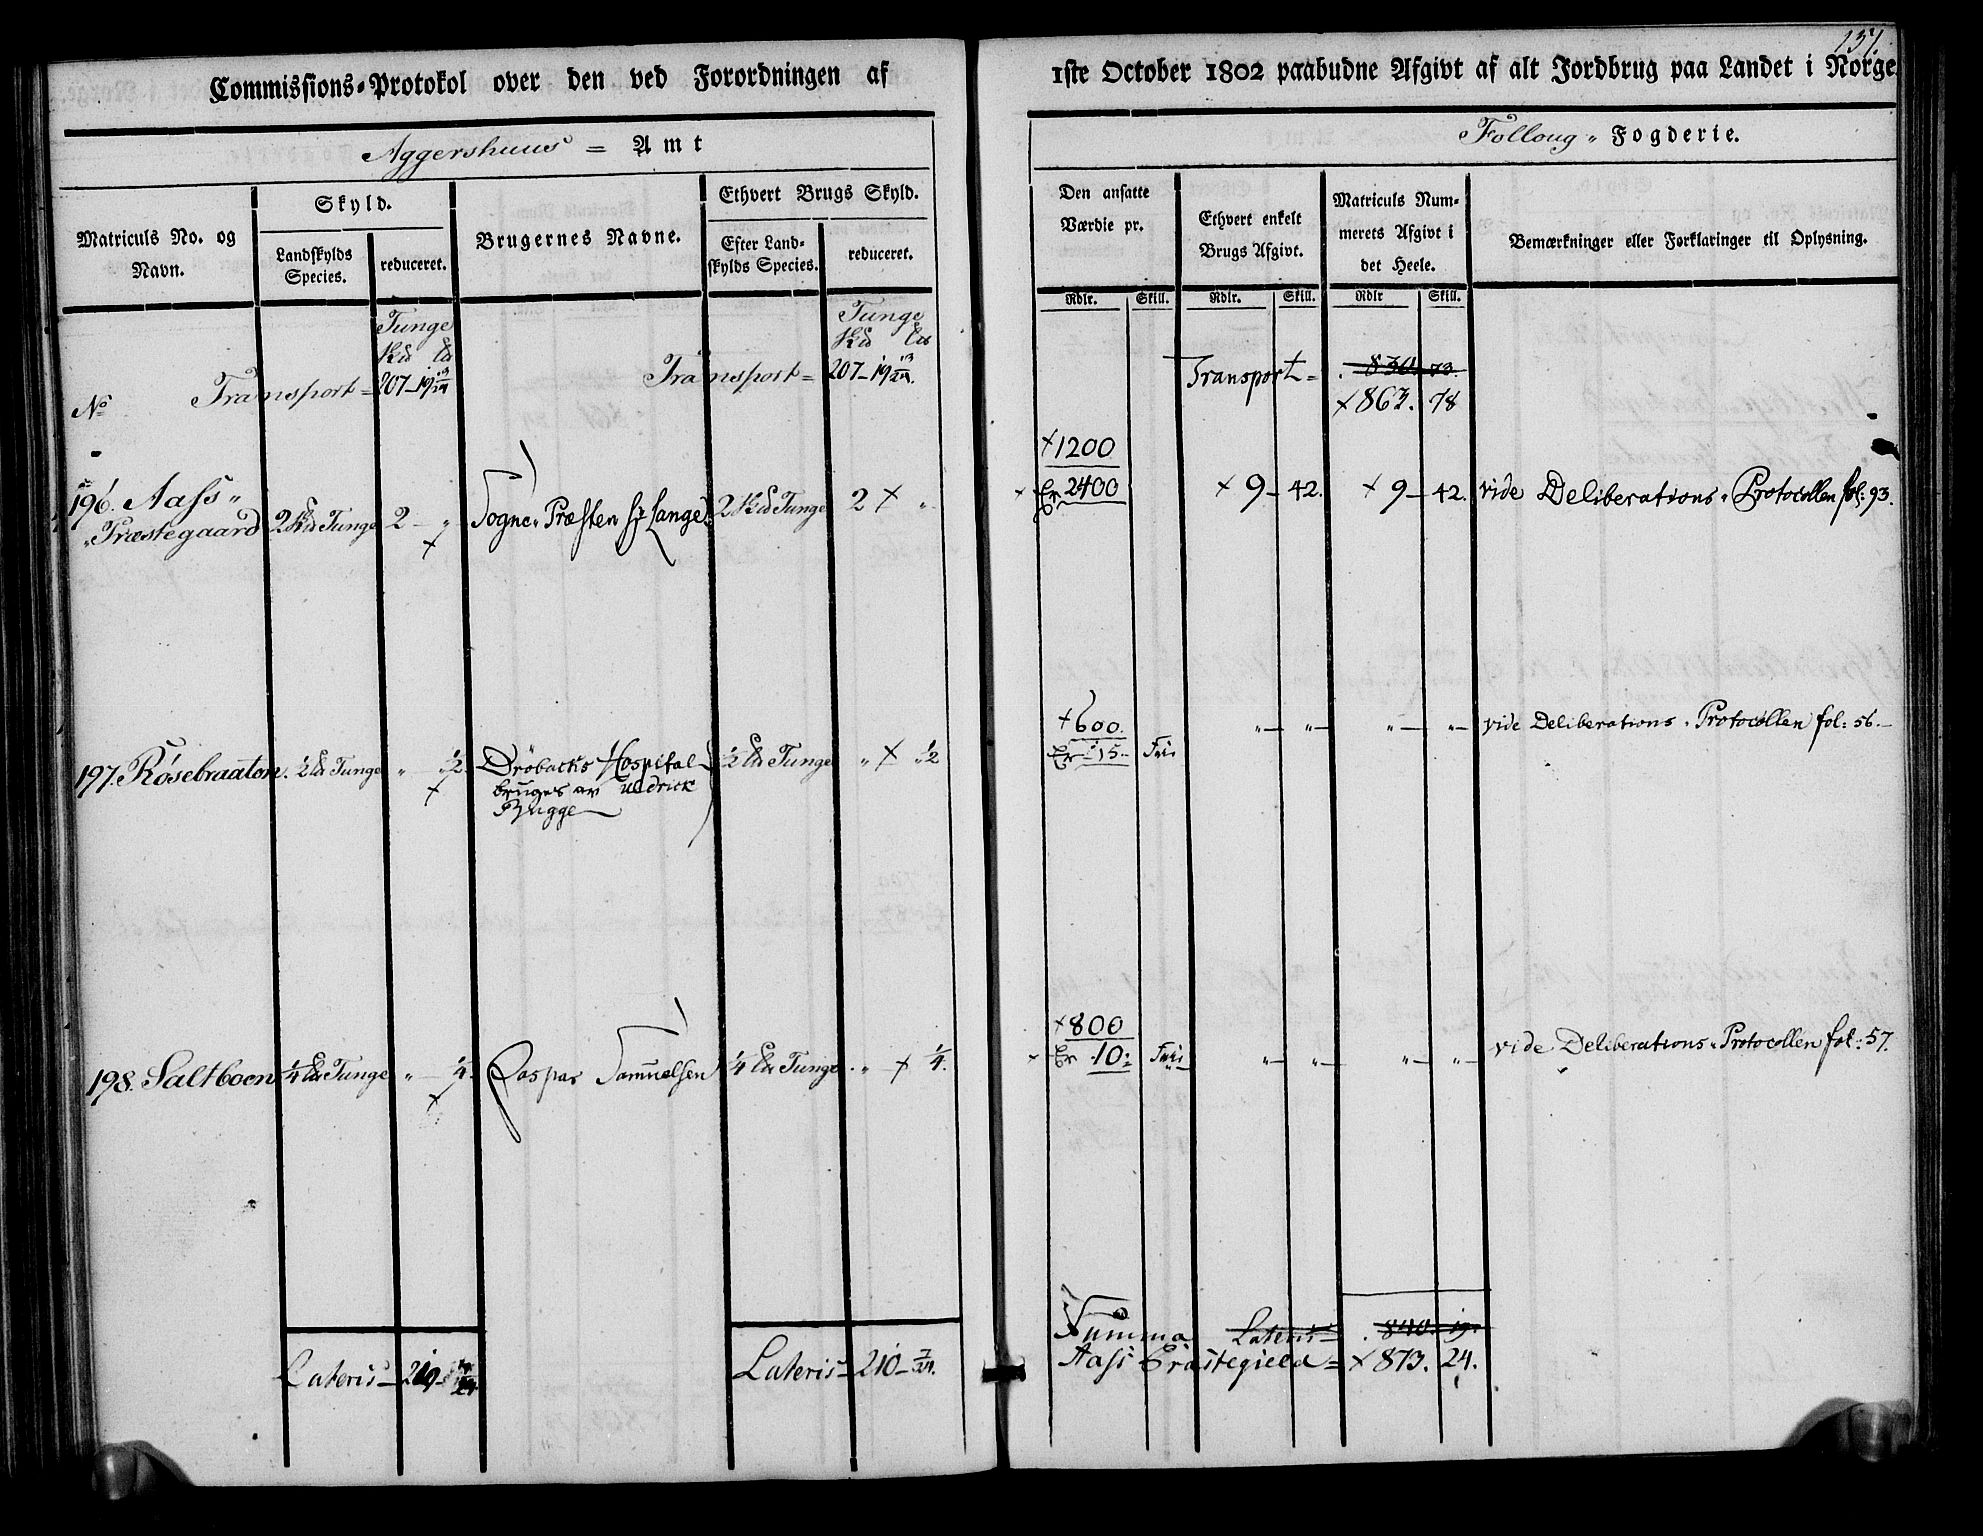 137.
Commissions-Protokol over den ved Forordningen af
1ste October 1802 paabudne Afgivt af alt Jordbrug paa Landet i Norge
Aggershuus = Amt
Folloug „ Fogderie.
Matriculs No. og Navn.
Skyld.
Landskylds Species.
reduceret.
Brugernes Navne.
Ethvert Brugs Skyld.
Efter Land-skylds Species.
reduceret.
Den ansatte Værdie pr.
Rdlr. Skill.
Ethvert enkelt Brugs Afgivt.
Rdlr. Skill.
Matriculs Num-merets Afgivt i det Heele.
Rdlr Skill.
Bemærkninger eller Forklaringer til Oplysning.
Tunge
Tunge
No
Transport = 207 – 19 13/24
Transport = 207 – 19 13/24.
Transport = 830. 73.
+ 863. 78
+ 1200
196. Aass „ Præstegaard 2 Skd Tunge 2 – „ Sogne „ Præsten Hr Lange. 2 Skd Tunge 2 + „
Er 2400 + 9 – 42. + 9 – 42. vide Deliberations „ Protocollen fol: 93.
+ 600.
197. Røsebraaten. ½ Ld Tunge „ – ½. Drøbacks Hospital bruges av Uldrick Bugge ½ Ld Tunge „ + ½
Er 15. Frie „ – „ – „ – „ – vide Deliberations „ Protocollen fol: 56.
+ 800
198. Saltboen ¼ Ld Tunge „ – ¼. Caspar Samuelsen ¼ Ld Tunge „ + ¼.
Er 10: Frie „ – „ – „ – „ – vide Deliberations „ Protocollen fol: 57.
Lateris –
Lateris – 210 – 7/24.
Summa Lateris – 840. 19.
Aass Præstegield = + 873. 24.